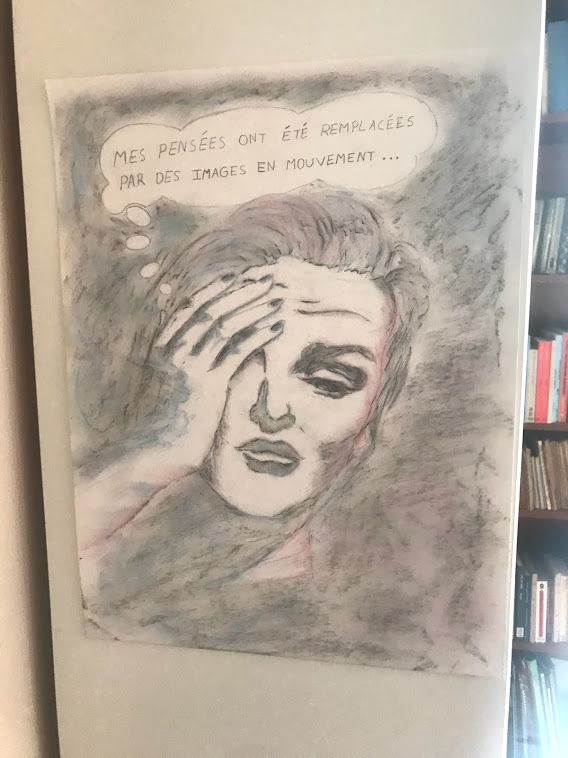 MES PENSÉES ONT ÉTÉ REMPLACÉES
PAR DES IMAGES EN MOUVEMENT...